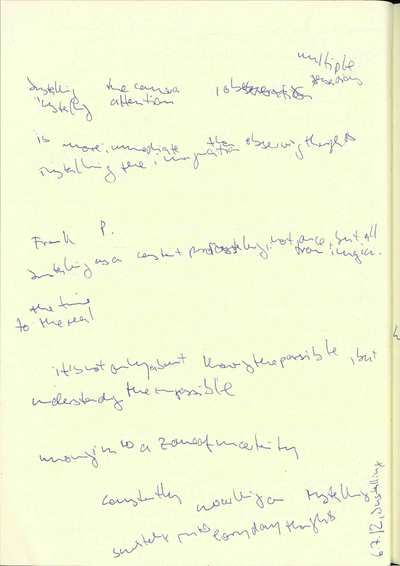 multiple
Installing the camera observation sensations
installing attention
is more immediate than observing thoughts
installing the imagination
Frank P.
Installing as a constant process, not once, but all
from imagin.
the time
to the real
it's not only about knowing the possible, but
understanding the impossible
moving into a zone of uncertainty
constantly working on installing
into everyday thoughts
67.12, Installing